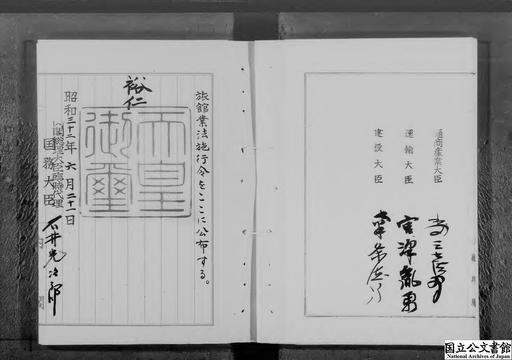 通商産業大臣
運輸大臣 宮澤胤勇
建設大臣
旅館業法施行令をここに公布する。
裕仁
天皇御璽
昭和三十二年六月二十一日
内閣総理大臣臨時代理
国務大臣 石井光次郎
内閣
国立公文書館
National Archives of Japan